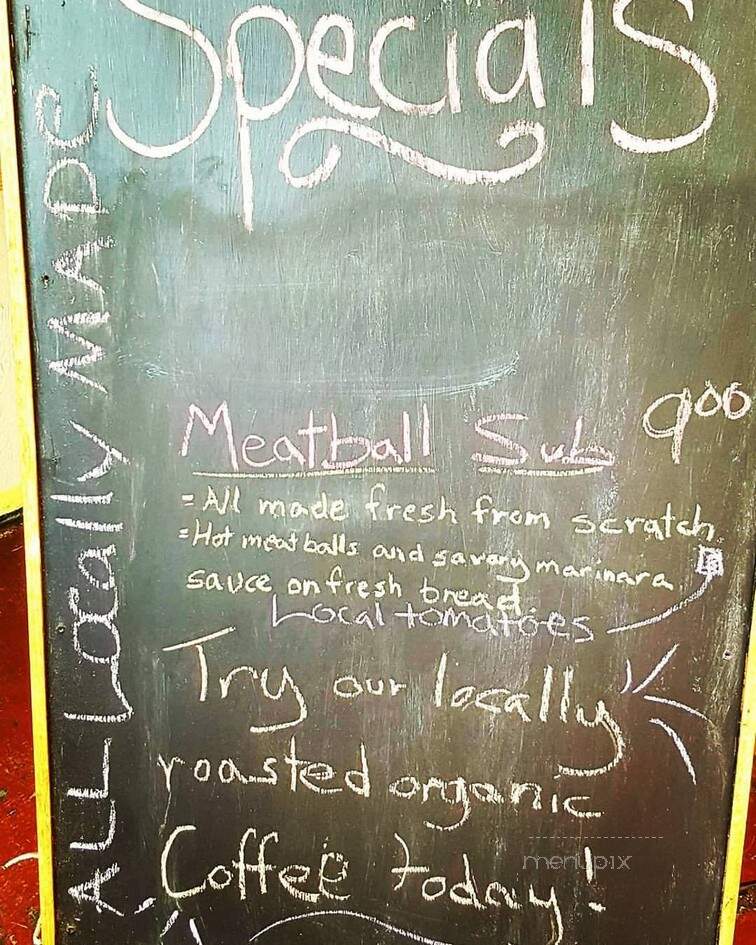 Specials
ALL Locally MADE
Meatball Sub 9⁰⁰
= All made fresh from scratch
= Hot meatballs and savory marinara
sauce on fresh bread.
Local tomatoes
Try our locally
roasted organic
Coffee today!
menupix